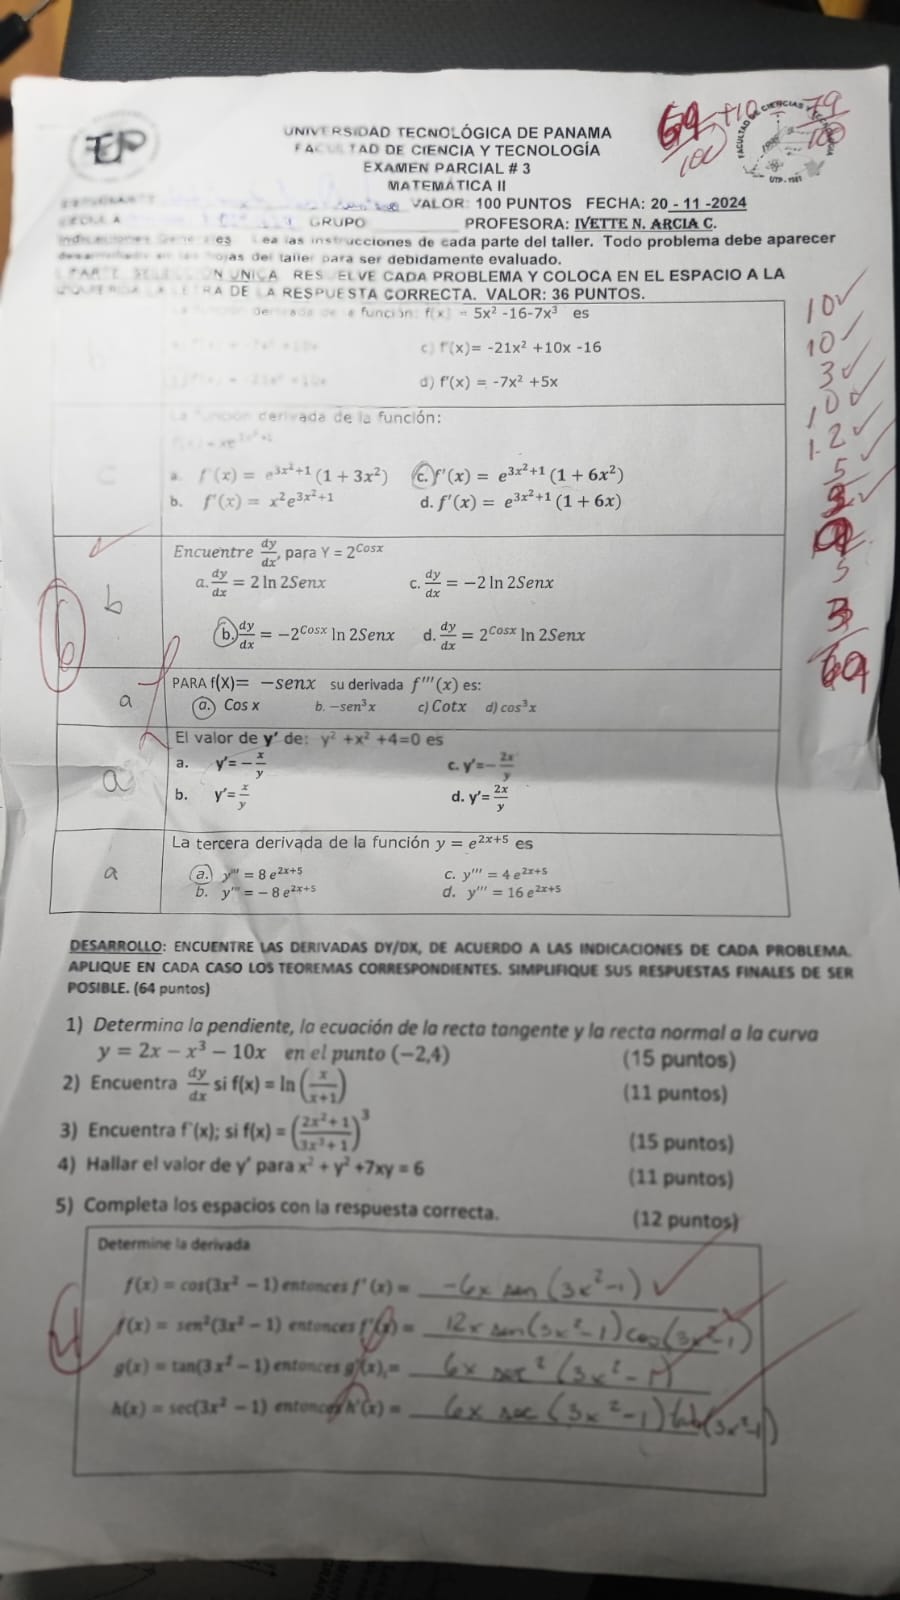 UNIVERSIDAD TECNOLÓGICA DE PANAMA
FACULTAD DE CIENCIA Y TECNOLOGÍA
EXAMEN PARCIAL # 3
MATEMÁTICA II
69/100 +10 79/100
VALOR: 100 PUNTOS FECHA: 20 - 11 -2024
GRUPO ________ PROFESORA: IVETTE N. ARCIA C.
Indicaciones Generales Lea las instrucciones de cada parte del taller. Todo problema debe aparecer
desarrollado en las hojas del taller para ser debidamente evaluado.
I PARTE. SELECCIÓN UNICA. RESUELVE CADA PROBLEMA Y COLOCA EN EL ESPACIO A LA
IZQUIERDA LA LETRA DE LA RESPUESTA CORRECTA. VALOR: 36 PUNTOS.
La función derivada de la función: f(x) = 5x² -16-7x³ es
c) f'(x)= -21x² +10x -16
d) f'(x) = -7x² +5x
La función derivada de la función:
c
a. f'(x) = e^{3x²+1} (1 + 3x²) c. f'(x) = e^{3x²+1} (1 + 6x²)
b. f'(x) = x²e^{3x²+1} d. f'(x) = e^{3x²+1} (1 + 6x)
Encuentre dy/dx, para Y = 2^{Cosx}
a. dy/dx = 2 ln 2Senx c. dy/dx = −2 ln 2Senx
b
b. dy/dx = −2^{Cosx} ln 2Senx d. dy/dx = 2^{Cosx} ln 2Senx
PARA f(X)= −senx su derivada f'''(x) es:
a
a. Cos x b. −sen³x c) Cotx d) cos³x
El valor de y' de: y² +x² +4=0 es
a
a. y'= −x/y c. y'=−2x/y
b. y'= x/y d. y'= 2x/y
La tercera derivada de la función y = e^{2x+5} es
a
a. y''' = 8 e^{2x+5} c. y''' = 4 e^{2x+5}
b. y''' = − 8 e^{2x+5} d. y''' = 16 e^{2x+5}
10✓
10✓
3✓
10✓
12✓
5✓
5
3
69
DESARROLLO: ENCUENTRE LAS DERIVADAS DY/DX, DE ACUERDO A LAS INDICACIONES DE CADA PROBLEMA.
APLIQUE EN CADA CASO LOS TEOREMAS CORRESPONDIENTES. SIMPLIFIQUE SUS RESPUESTAS FINALES DE SER
POSIBLE. (64 puntos)
1) Determina la pendiente, la ecuación de la recta tangente y la recta normal a la curva
y = 2x − x³ − 10x en el punto (−2,4) (15 puntos)
2) Encuentra dy/dx si f(x) = ln (x/(x+1)) (11 puntos)
3) Encuentra f'(x); si f(x) = ((2x²+1)/(3x³+1))³ (15 puntos)
4) Hallar el valor de y' para x² + y² +7xy = 6 (11 puntos)
5) Completa los espacios con la respuesta correcta. (12 puntos)
Determine la derivada
f(x) = cos(3x² − 1) entonces f'(x) = -6x sen (3x²-1)
f(x) = sen²(3x² − 1) entonces f'(x) = 12x sen(3x²-1) cos(3x²-1)
g(x) = tan(3x² − 1) entonces g'(x) = 6x sec² (3x²-1)
h(x) = sec(3x² − 1) entonces h'(x) = 6x sec (3x²-1) tan(3x²-1)